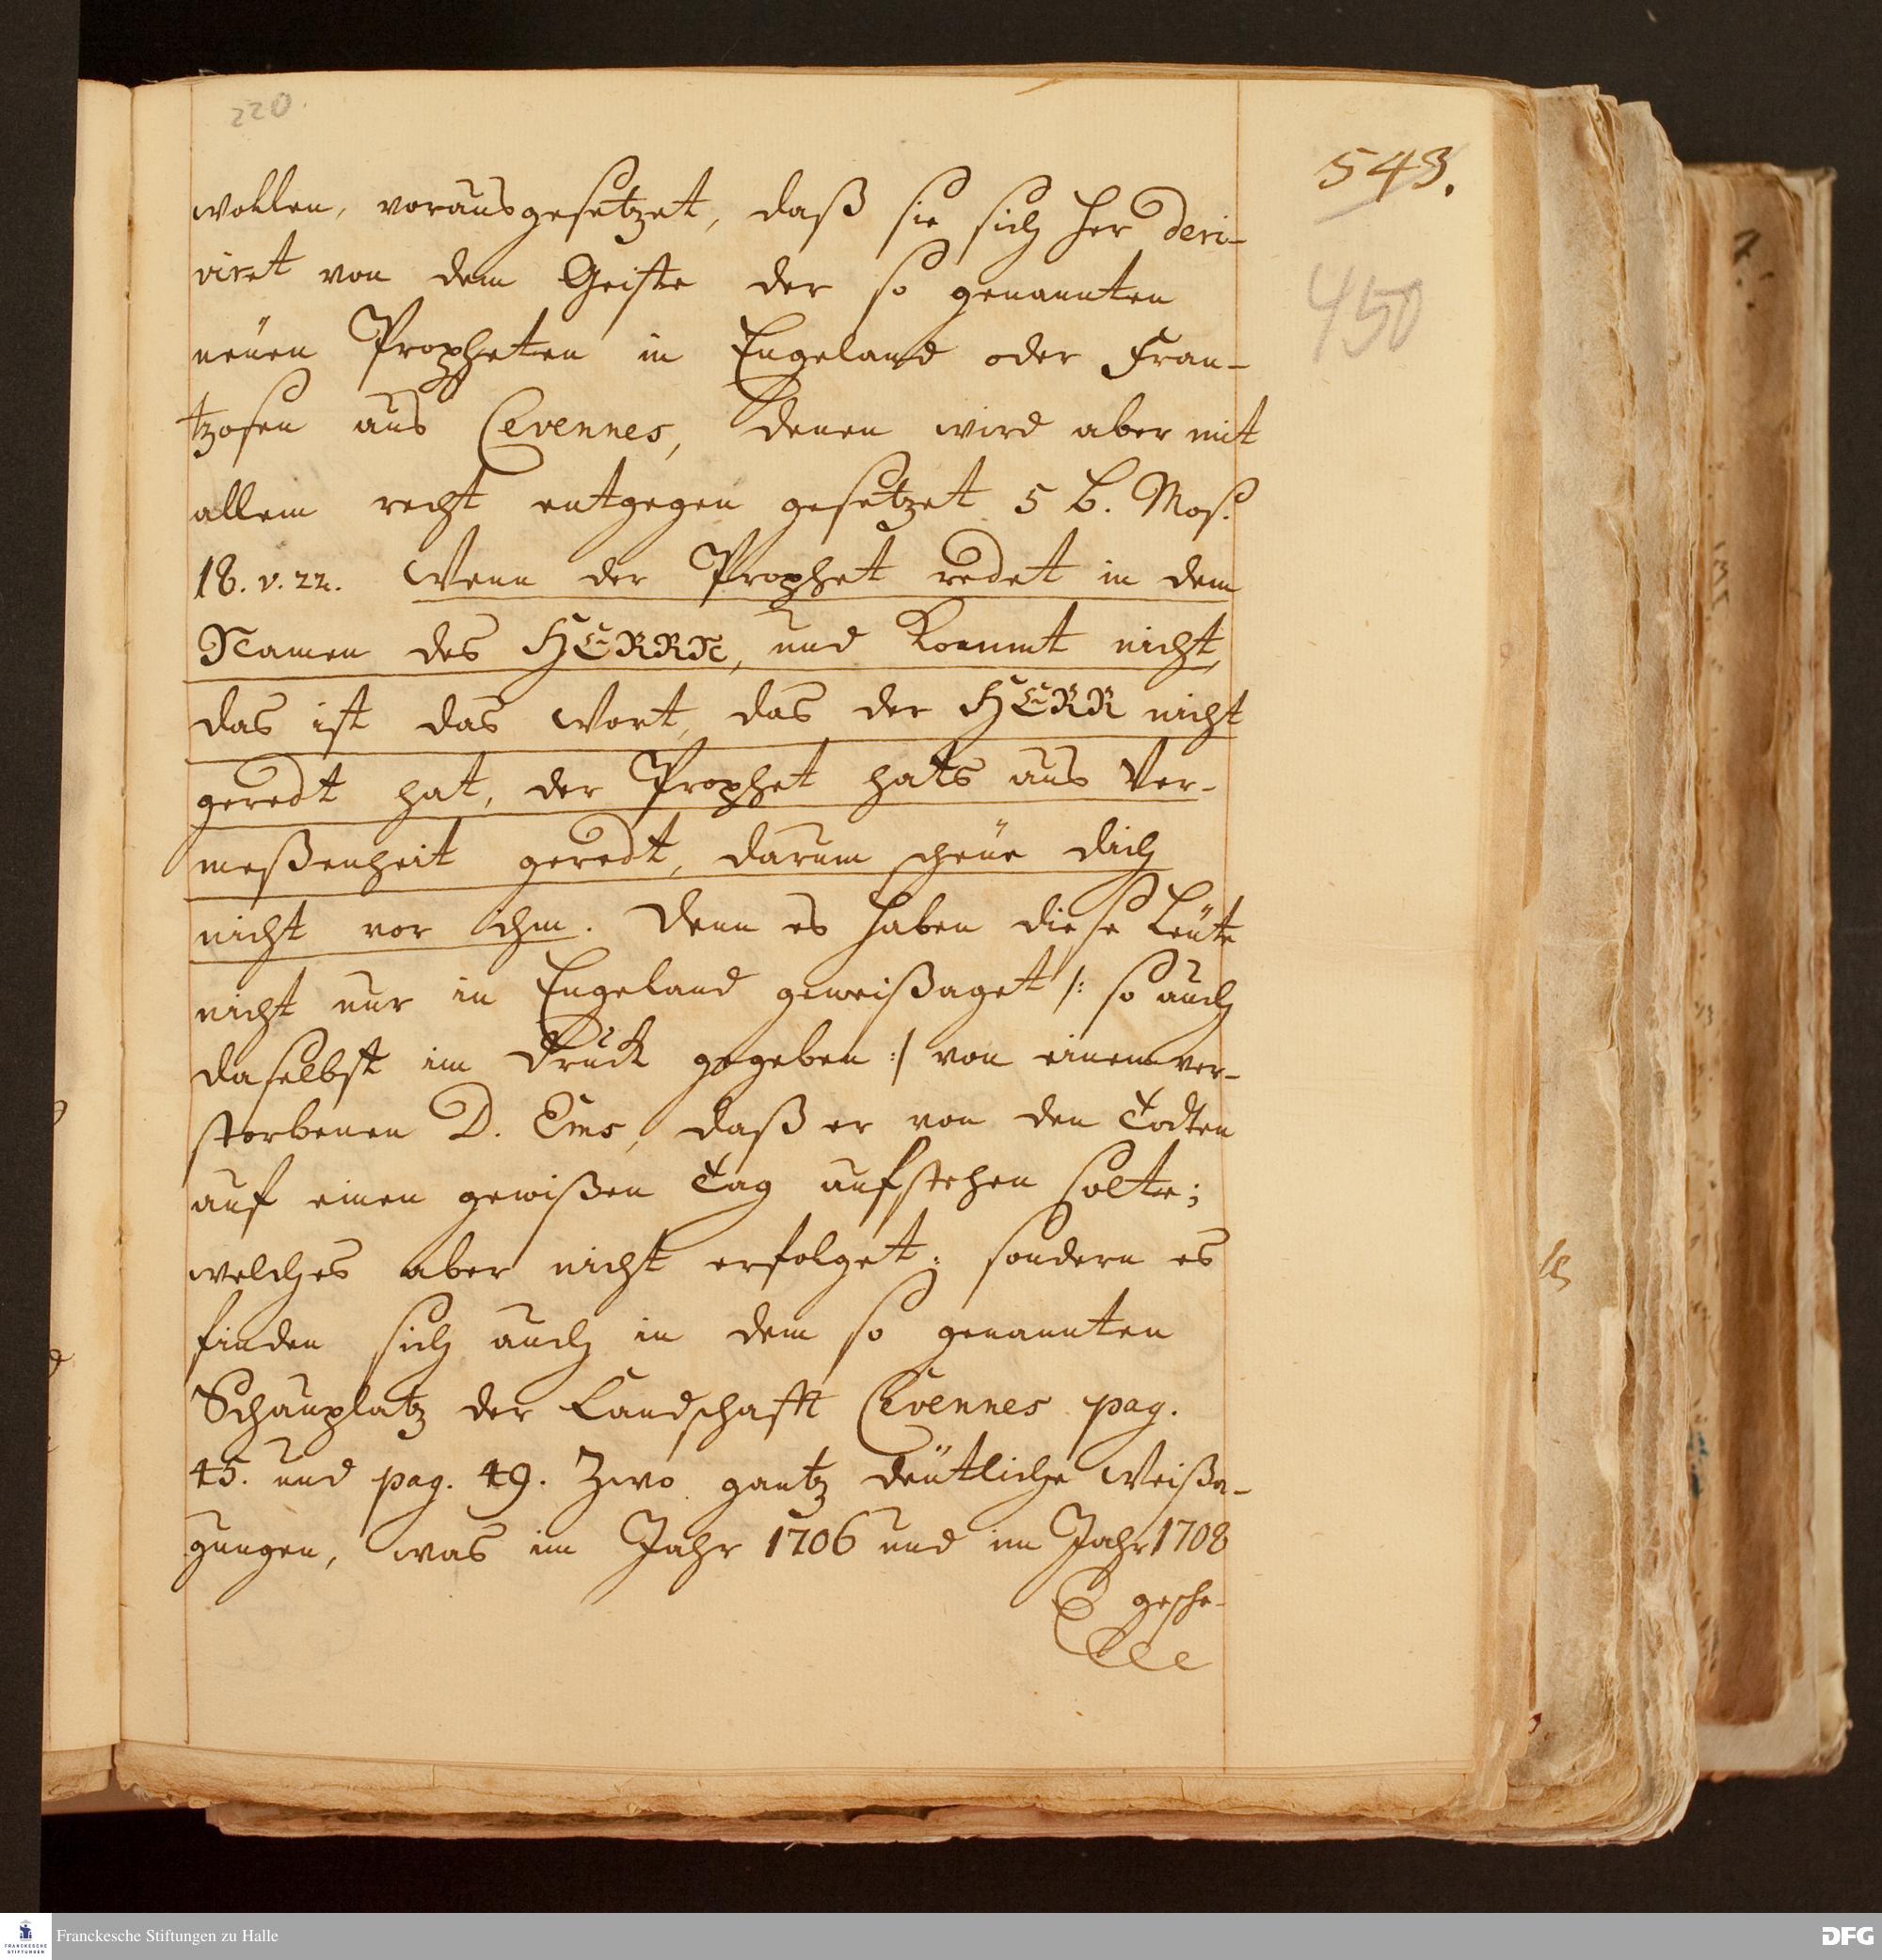 220.
543.
450
wollen, vorausgesetzet, daß sie sich her deri-
viret von dem Geiste der so genannten
neüen Propheten in Engeland oder Fran-
tzosen aus Cevennes, denen wird aber mit
allem recht entgegen gesetzet 5 B. Mos.
18. v. 22. Wenn der Prophet redet in dem
Namen des HERRN, und kommt nicht,
das ist das Wort, das der HERR nicht
geredt hat, der Prophet hats aus Ver-
meßenheit geredt, darum scheüe dich
nicht vor ihm. Denn es haben diese Leüte
nicht nur in Engeland geweißaget /: so auch
daselbst im Druck gegeben :/ von einem ver-
storbenen D. Ems, daß er von den Todten
auf einen gewißen Tag aufstehen solte;
welches aber nicht erfolget; sondern es
finden sich auch in dem so genannten
Schauplatz der Landschafft Cevennes pag.
45. und pag. 49. Zwo gantz deütliche Weißa-
gungen, was im Jahr 1706 und im Jahr 1708
gesche-
Franckesche Stiftungen zu Halle
FRANCKESCHE
STIFTUNGEN
DFG